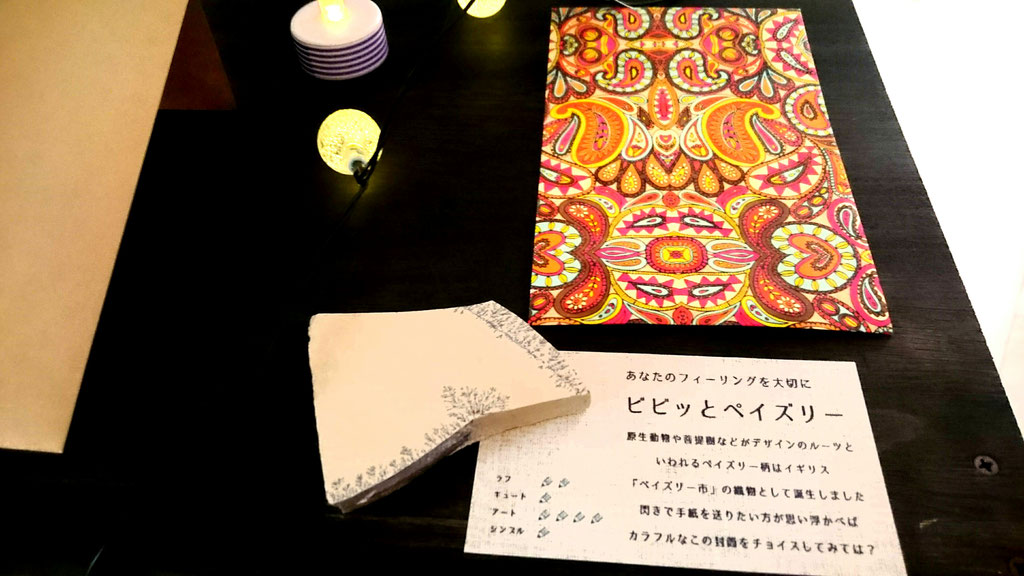 あなたのフィーリングを大切に
ビビッとペイズリー
原生動物や菩提樹などがデザインのルーツと
いわれるペイズリー柄はイギリス
「ペイズリー市」の織物として誕生しました
閃きで手紙を送りたい方が思い浮かべば
カラフルなこの封筒をチョイスしてみては？
ラフ
キュート
アート
シンプル